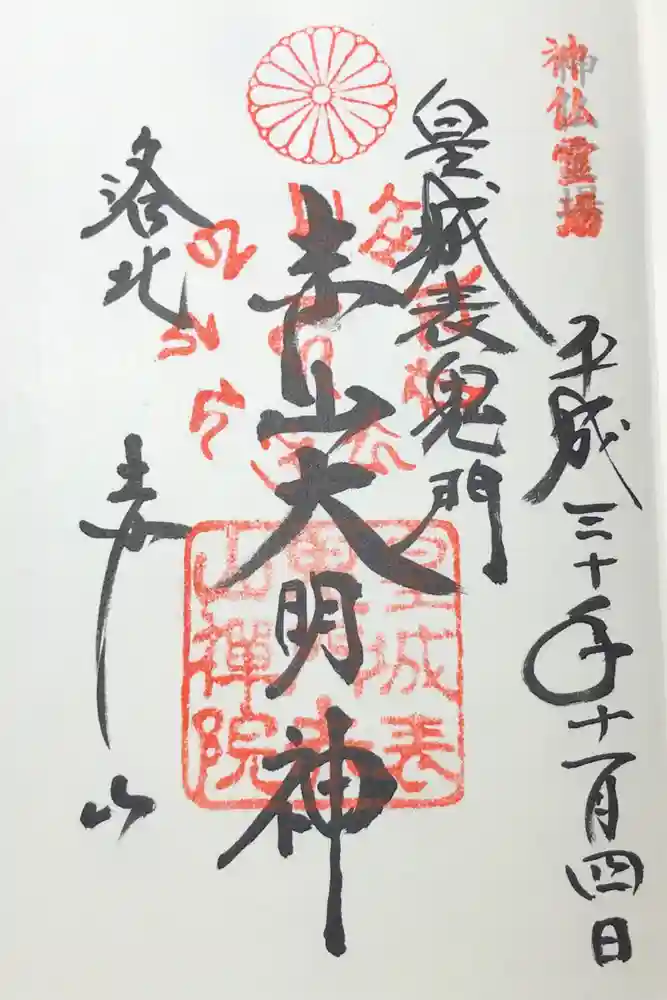 神仏霊場
平成三十年十一月四日
皇城表鬼門
赤山大明神
洛北
赤山
皇城表
鬼門赤
山禅院